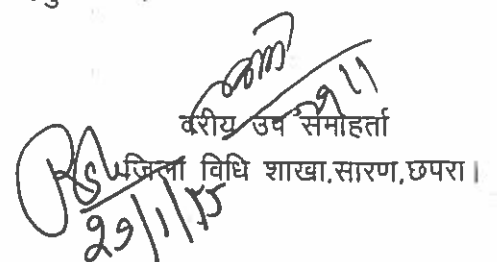 वरीय उप समाहर्ता
जिला विधि शाखा,सारण,छपरा।
29/1/25